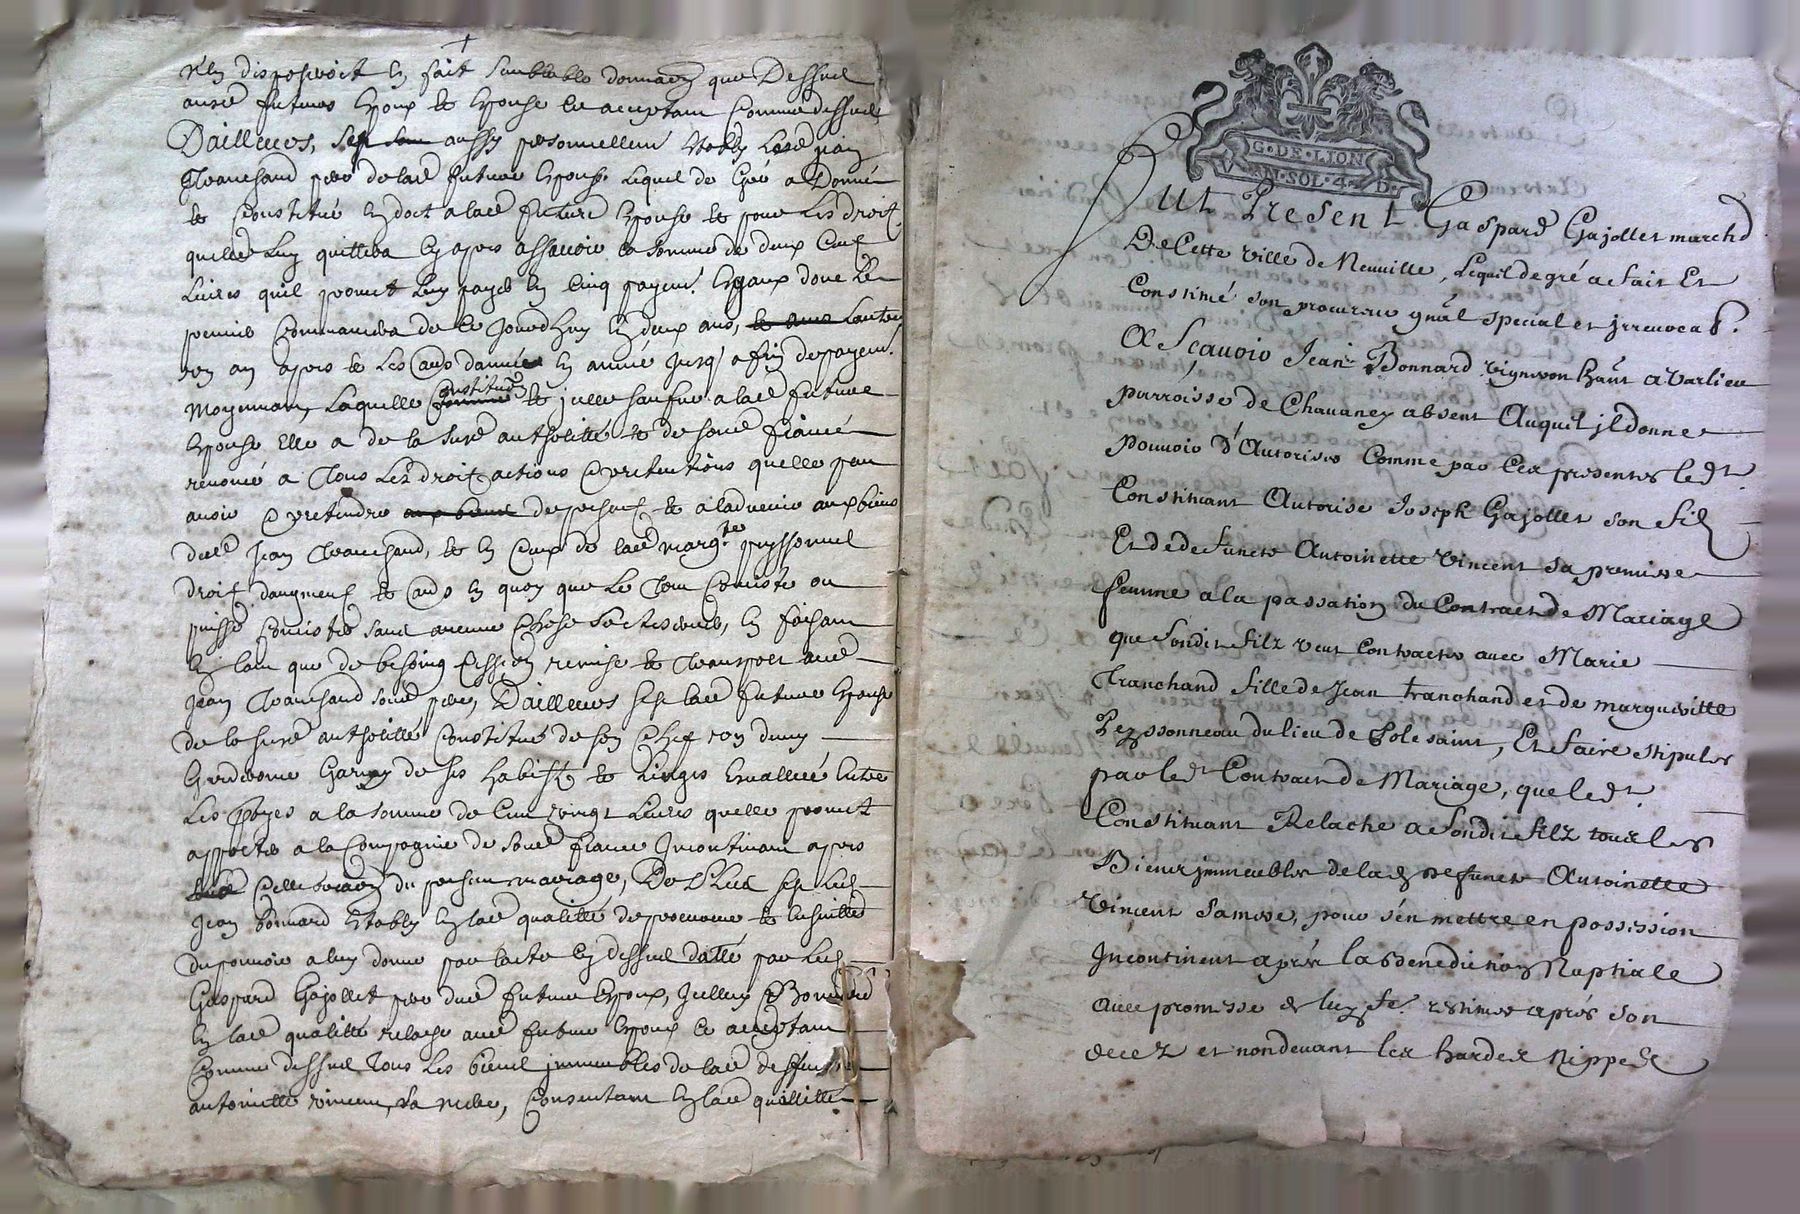 n'en disposeroit en fait semblable donnaõn que Dessus
ausd. futurs Epoux et Epouse ce acceptant comme dessus
D'ailleurs, aussy personnellem. Estably Led. Jean
Tranchand pere de lad. future Epouse Lequel de Gré a Donné
et Constitué en dot a lad. future Epouse et pour Les droit
quelle Luy quittera cy apres assavoir la somme de deux Cent
Livres quil promet Luy payer en cinq payem. Egaux dont Le
premier Commancera de ce Jourdhuy en deux ans, Lautre
un an apres et Les auts d'année en année jusq' a fin de payem.
Moyennant Laquelle constituõn et jcelle sauf a lad. future
Epouse Elle a de la susd. authoritté et de sond. fiancé
renoncé a Tous Les droit, actions et pretentions quelle peut
avoir et pretendre de present et a ladvenir aux biens
dud. Jean Tranchand, et en Ceux de lad. marg.te peyssonnel
droit daugment et auts en quoy que Le Tout Consiste ou
puisse Consister sans aucune Chose se reserver, en faisant
en tant que de besoing Cession remise et Transport aud.
Jean Tranchand sond. pere, D'ailleurs lad. future Epouse
de la susd. authoritté Constitué de son Chef un
Garderobe Garny de ses habist et Linges Evallué Entre
Les partyes a la somme de Cent vingt Livres quelle promet
apporter a la Compagnie de sond. fiancé Jncontinant apres
Cellebraõn du present mariage, De Plus Led.
Jean bonnard Estably en lad. qualitté de procureur et ensuitte
du pouvoir a luy donné par lacte cy dessus datté par Led.
Gaspard Gajollet pere dud. futur Epoux, Jcelluy Bonnard
en lad. qualitté relache aud. futur Epoux ce acceptant
Comme dessus Tous Les biens jmmeubles de lad. deffunte
antoinette vincent, sa mere, Consentant en lad. qualitté
G·DE·LION
V AN·SOL·4·D.
Fut Present Gaspard Gajollet march.d
De Cette ville de Neuville, Lequel de gré a fait Et
Constitué son procureur gnãl special et jrrevocab.
A Sçavoir Jean Bonnard vigneron habnt a varlieu
parroisse de Chavaney absent Auquel jl donne
pouvoir D'Autoriser Comme par Ces presentes led.t
Constituant Autorise Joseph Gajollet son fil
Et de defuncte Antoinette Vincent sa premiere
femme a la passation du Contract de Mariage
que sondit filz veut Contracter avec Marie
Tranchand fille de Jean tranchand et de margueritte
Peyssonneau du lieu de , Et faire stipuler
par led.t Contract de Mariage, que led.t
Constituant Relache a sondit filz tous les
Biens jmmeubles de lad. defuncte Antoinette
Vincent sa mere, pour s'en mettre en possession
Jncontinent aprés la Benediction Nuptiale
avec promesse de luy restituer aprés son
decez et non devant les hardes Nippes